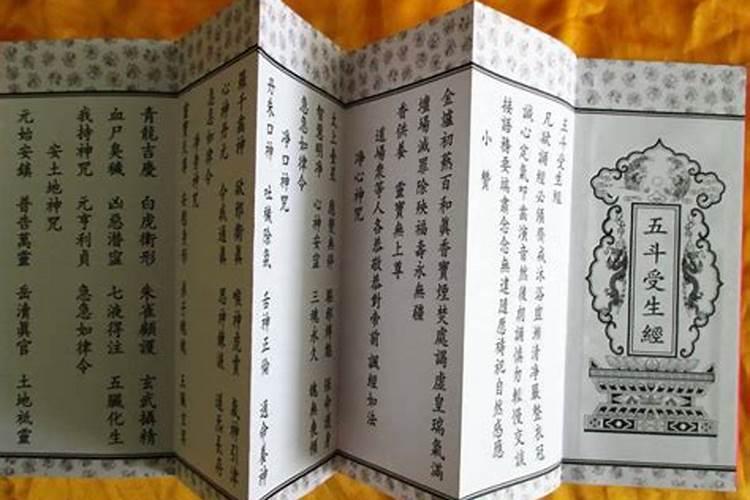 五斗受生經
五斗受生經
凡欲誦經必須齋戒沐浴盥漱清淨嚴整衣冠
誠心定氣叩齒演音然後朗誦慎勿輕慢交談
接語務要端肅念念無違隨應禱祀自然感應
小 贊
金爐初爇百和真香寶煙焚處謁虛皇瑞氣滿
壇場滅罪除殃福壽永無疆
香供養 靈寶無上尊
道場衆等人各恭敬恭對帝前 誦經如法
淨心神咒
太上臺星 應變無停 驅邪縛魅 保命護身
智慧明淨 心神安寧 三魂永久 魄無喪傾
急急如律令
淨口神咒
丹朱口神 吐穢除氛 舌神正倫 通命養神
羅千齒神 卻邪衛真 喉神虎賁 氣神引津
心神丹元 令我通真 思神鍊液 道炁長存
急急如律令
淨身神咒
靈寶天尊 安慰身形 弟子魂魄 五臟玄冥
青龍吉慶 白虎衛形 朱雀顧護 玄武攝精
血尸臭穢 凶惡潛寍 七液得注 五臟化生
我持神咒 元亨利貞 急急如律令
安土地神咒
元始安鎮 普告萬靈 岳瀆真官 土地祇靈